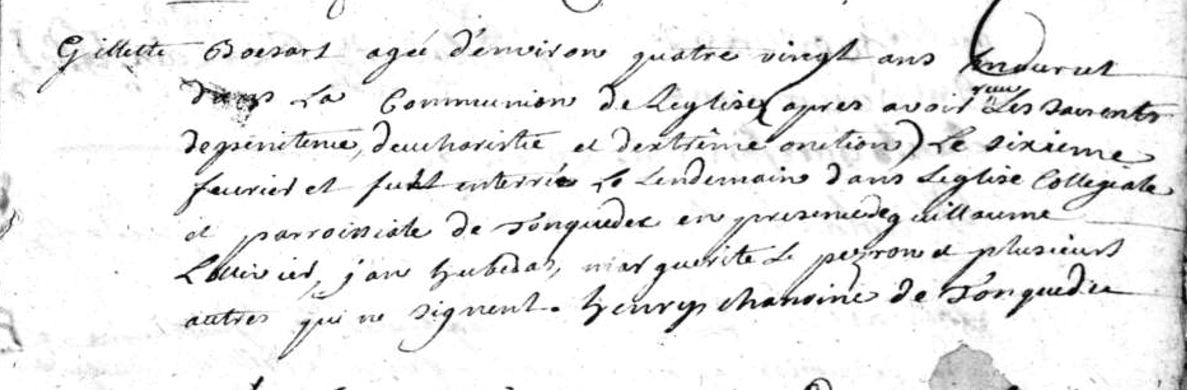 Gillette Boesart ageé d'environ quatre vingt ans mourut
dans La Communion de Leglise (apres avoir receu Les sacrents
de penitence, deucharistie et dextrême onction) Le sixieme
feuvrier et fust enterrée Le Lendemain dans Leglise Collegiale
et parroissiale de Tonquedec en presence de guillaume
Lollivier, jan hubedas, marguerite Le peron et plusieurs
autres qui ne signent. henry chanoine de Tonquedec